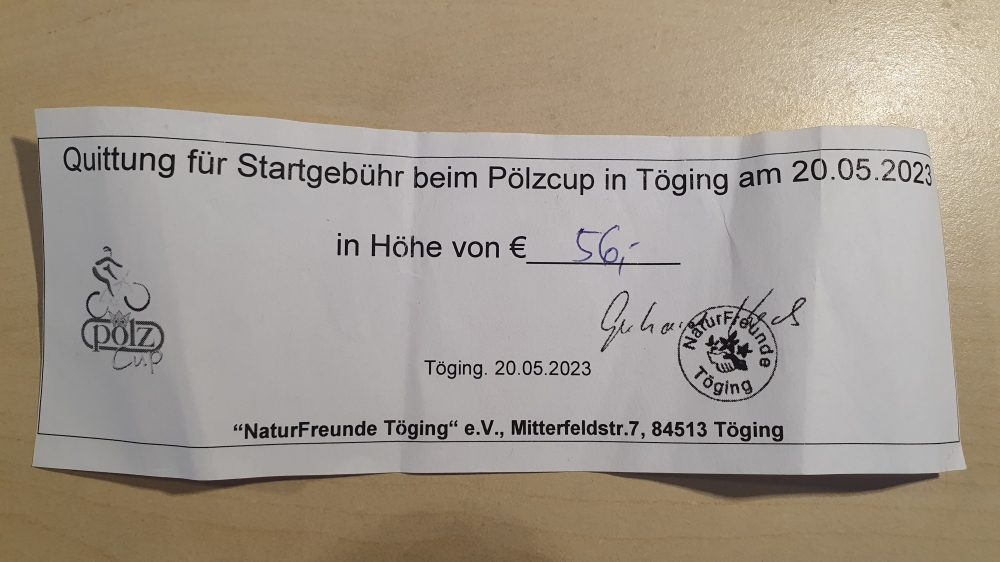 Quittung für Startgebühr beim Pölzcup in Töging am 20.05.2023
in Höhe von € 56,-
pölz
Cup
NaturFreunde
Töging
Töging. 20.05.2023
“NaturFreunde Töging“ e.V., Mitterfeldstr.7, 84513 Töging